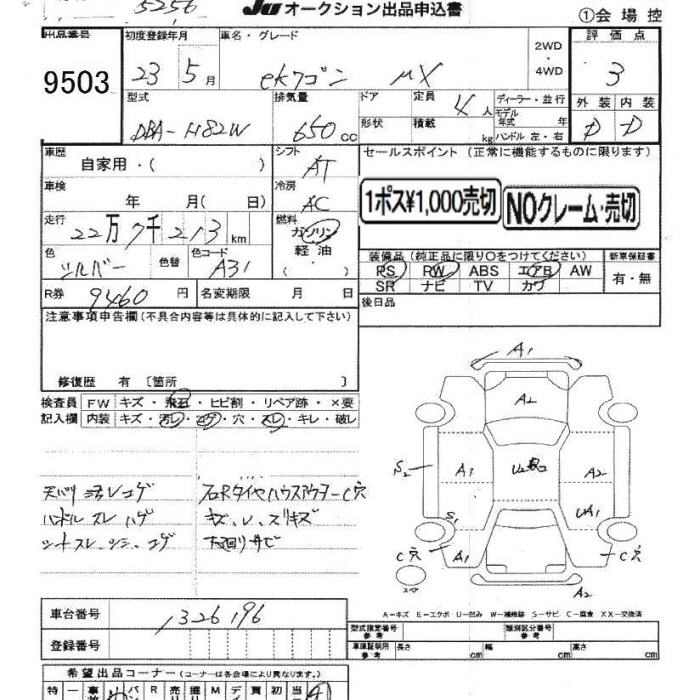 5256 JU オークション出品申込書 ①会場控
出品番号 初度登録年月 車名・グレード 2WD・4WD 評価点
9503 23 5月 ekワゴン MX 3
型式 排気量 ドア 定員 4人 ディーラー・並行 外装 内装
DBA-H82W 650cc 形状 積載 kg モデル年式 年 ハンドル 左・右 D D
車歴 自家用・( ) シフト AT セールスポイント (正常に機能するものに限ります)
車検 年 月( 日) 冷房 AC 1ポス¥1,000売切 NOクレーム・売切
走行 22万7千213km 燃料 ガソリン 軽油
装備品 (純正品に限り○をつけてください) 新車保証書
色 シルバー 色替 色コード A31 PS PW ABS エアB AW 有・無
SR ナビ TV カワ
R券 9460円 名変期限 月 日 後日品
注意事項申告欄 (不具合内容等は具体的に記入して下さい)
修復歴 有 〔箇所 〕
検査員記入欄 FW キズ・飛石・ヒビ割・リペア跡・×要
内装 キズ・汚レ・コゲ・穴・スレ・キレ・破レ
天バリ汚レコゲ 右RタイヤハウスアウターC穴
ハンドルスレハゲ
下回りサビ
A1
A2
S2 A1 U2 A2
S1 UA1
C穴 A1 C穴
スペア A2
A-キズ E-エクボ U-凹み W-補修跡 S-サビ C-腐食 XX-交換済
車台番号 1326196
登録番号
型式指定番号 参考 類別区分番号 参考
車庫証明用 参考 長さ cm 幅 cm 高さ cm
希望出品コーナー (コーナーは各会場により異なります。)